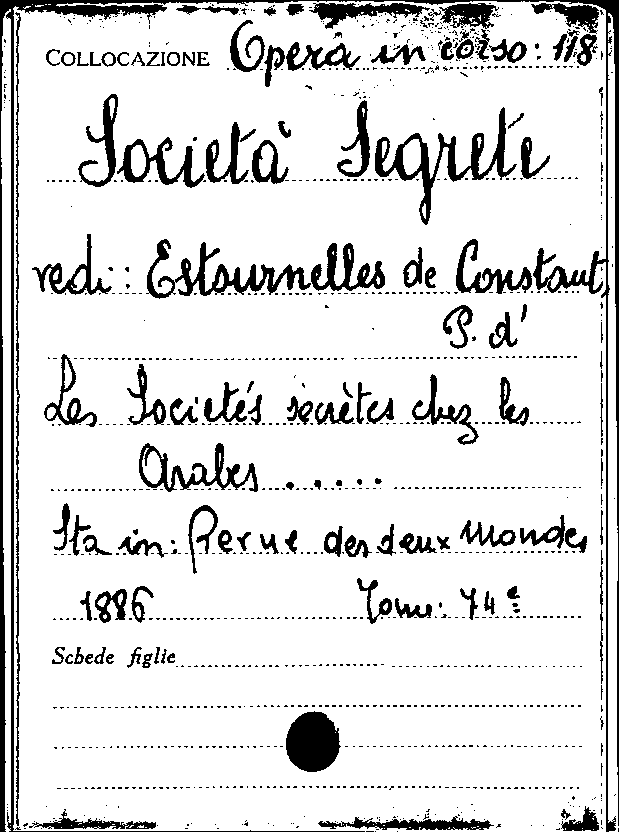 COLLOCAZIONE Opera in corso: 118
Società Segrete
vedi: Estournelles de Constant,
P. d'
Les Societés secrètes chez les
Arabes .....
Sta in: Revue des deux Mondes
1886 Tome: 74e
Schede figlie